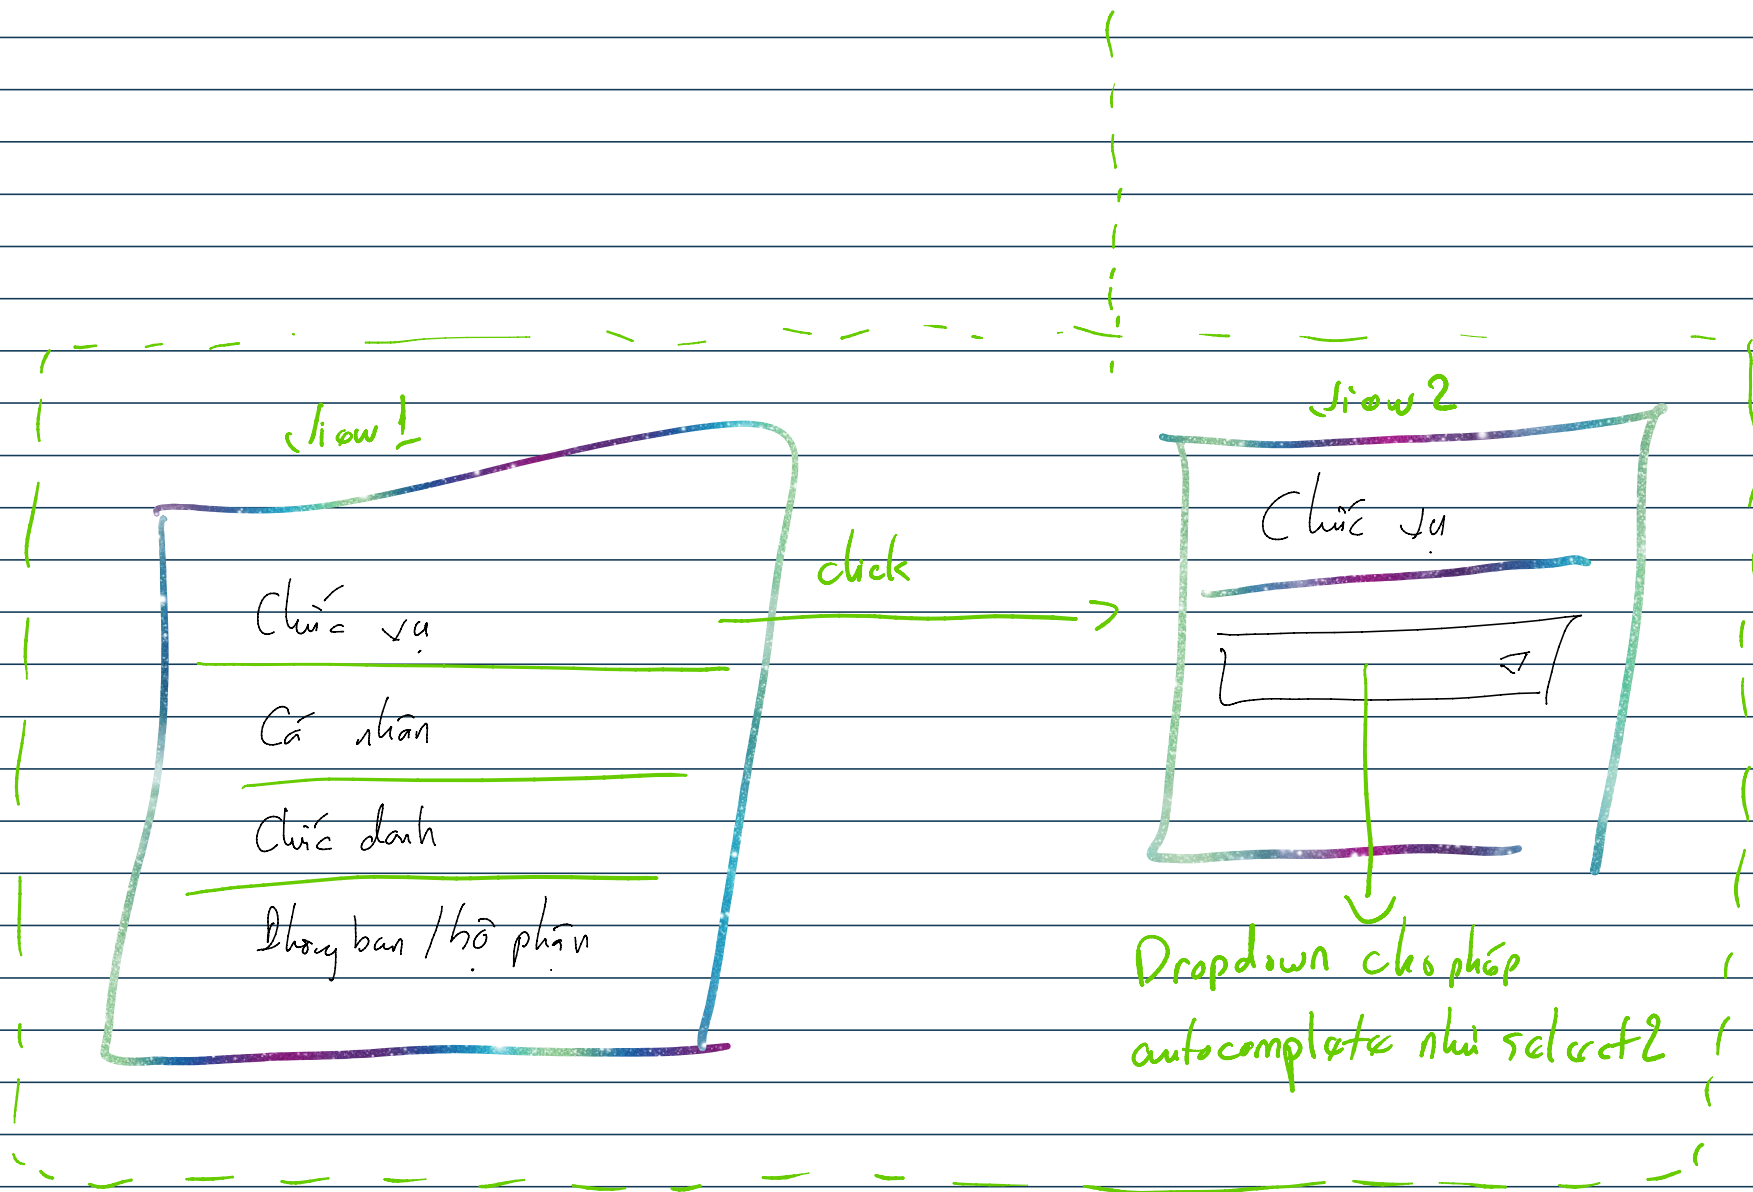 View 1
Chức vụ
Cá nhân
Chức danh
Phòng ban / bộ phận
click
View 2
Chức vụ
Dropdown cho phép
autocomplete như select2